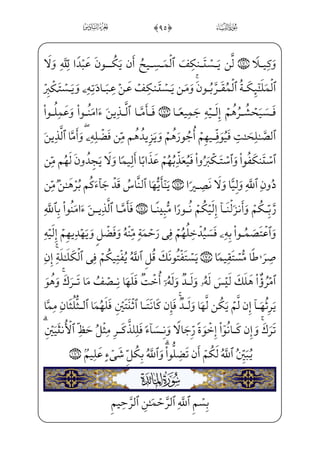 سُورَةُ النِّسَاءِ ﴿٩٥﴾ الجُزْءُ السَّادِسُ
وَكِيلًا ۝ لَّن يَسْتَنكِفَ الْمَسِيحُ أَن يَكُونَ عَبْدًا لِّلَّهِ وَلَا
الْمَلَائِكَةُ الْمُقَرَّبُونَ ۚ وَمَن يَسْتَنكِفْ عَنْ عِبَادَتِهِ وَيَسْتَكْبِرْ
فَسَيَحْشُرُهُمْ إِلَيْهِ جَمِيعًا ۝ فَأَمَّا الَّذِينَ آمَنُوا وَعَمِلُوا
الصَّالِحَاتِ فَيُوَفِّيهِمْ أُجُورَهُمْ وَيَزِيدُهُم مِّن فَضْلِهِ ۖ وَأَمَّا الَّذِينَ
اسْتَنكَفُوا وَاسْتَكْبَرُوا فَيُعَذِّبُهُمْ عَذَابًا أَلِيمًا وَلَا يَجِدُونَ لَهُم مِّن
دُونِ اللَّهِ وَلِيًّا وَلَا نَصِيرًا ۝ يَا أَيُّهَا النَّاسُ قَدْ جَاءَكُم بُرْهَانٌ مِّن
رَّبِّكُمْ وَأَنزَلْنَا إِلَيْكُمْ نُورًا مُّبِينًا ۝ فَأَمَّا الَّذِينَ آمَنُوا بِاللَّهِ
وَاعْتَصَمُوا بِهِ فَسَيُدْخِلُهُمْ فِي رَحْمَةٍ مِّنْهُ وَفَضْلٍ وَيَهْدِيهِمْ إِلَيْهِ
صِرَاطًا مُّسْتَقِيمًا ۝ يَسْتَفْتُونَكَ قُلِ اللَّهُ يُفْتِيكُمْ فِي الْكَلَالَةِ ۚ إِنِ
امْرُؤٌ هَلَكَ لَيْسَ لَهُ وَلَدٌ وَلَهُ أُخْتٌ فَلَهَا نِصْفُ مَا تَرَكَ ۚ وَهُوَ
يَرِثُهَا إِن لَّمْ يَكُن لَّهَا وَلَدٌ ۚ فَإِن كَانَتَا اثْنَتَيْنِ فَلَهُمَا الثُّلُثَانِ مِمَّا
تَرَكَ ۚ وَإِن كَانُوا إِخْوَةً رِّجَالًا وَنِسَاءً فَلِلذَّكَرِ مِثْلُ حَظِّ الْأُنثَيَيْنِ ۗ
يُبَيِّنُ اللَّهُ لَكُمْ أَن تَضِلُّوا ۗ وَاللَّهُ بِكُلِّ شَيْءٍ عَلِيمٌ ۝
سُورَةُ المَائِدَةِ
بِسْمِ اللَّهِ الرَّحْمَٰنِ الرَّحِيمِ